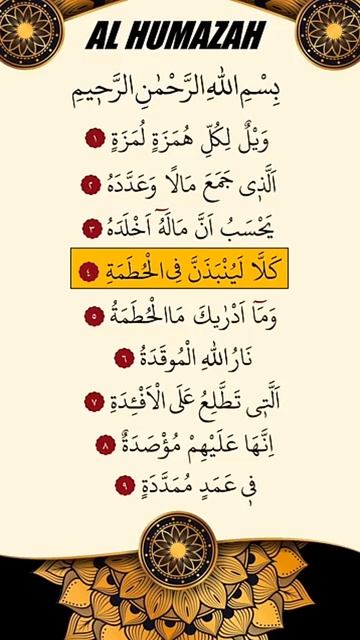 AL HUMAZAH
بِسْمِ اللهِ الرَّحْمٰنِ الرَّحِيْمِ
وَيْلٌ لِكُلِّ هُمَزَةٍ لُمَزَةٍ ١
اَلَّذٖى جَمَعَ مَالًا وَعَدَّدَهُ ٢
يَحْسَبُ اَنَّ مَالَهُٓ اَخْلَدَهُ ٣
كَلَّا لَيُنْبَذَنَّ فِى الْحُطَمَةِ ٤
وَمَٓا اَدْرٰيكَ مَا الْحُطَمَةُ ٥
نَارُ اللهِ الْمُوقَدَةُ ٦
اَلَّتٖى تَطَّلِعُ عَلَى الْاَفْـِٔدَةِ ٧
اِنَّهَا عَلَيْهِمْ مُؤْصَدَةٌ ٨
فٖى عَمَدٍ مُمَدَّدَةٍ ٩